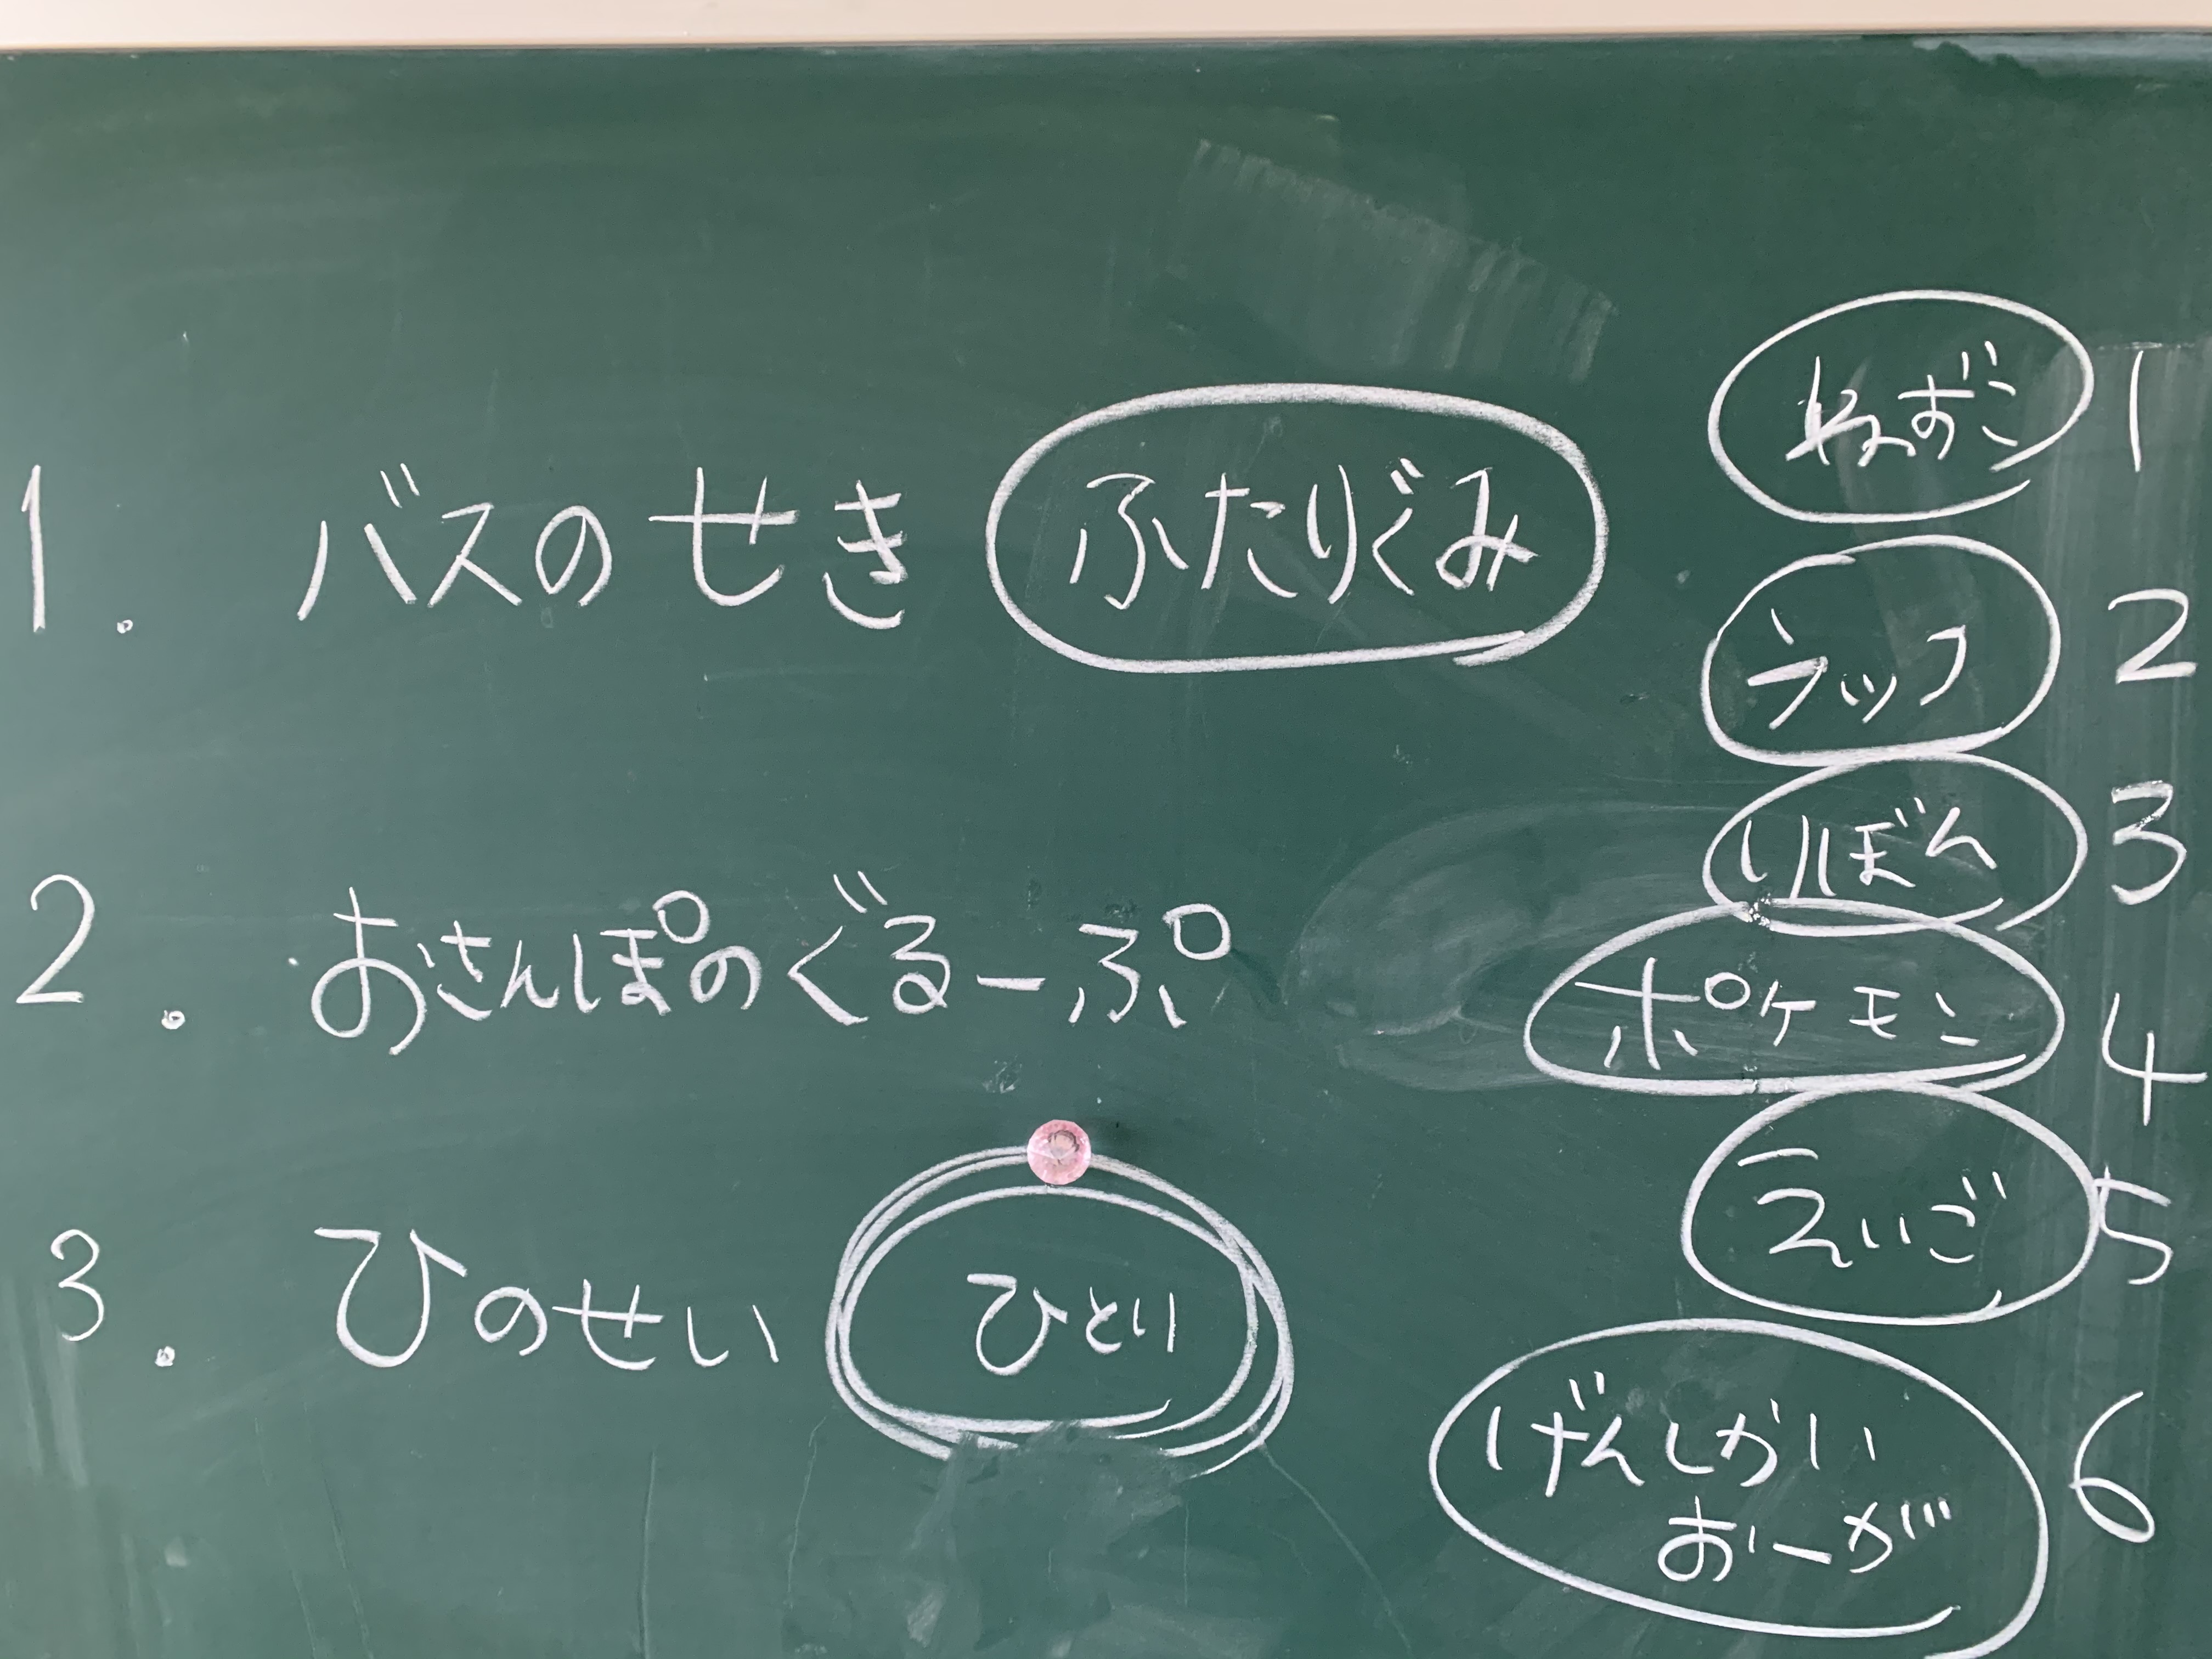 1. バスのせき ふたりぐみ
2. おさんぽのぐるーぷ
3. ひのせい ひとり
ねずこ 1
ラップ 2
りぼん 3
ポケモン 4
えいご 5
げんしかい
おーが 6